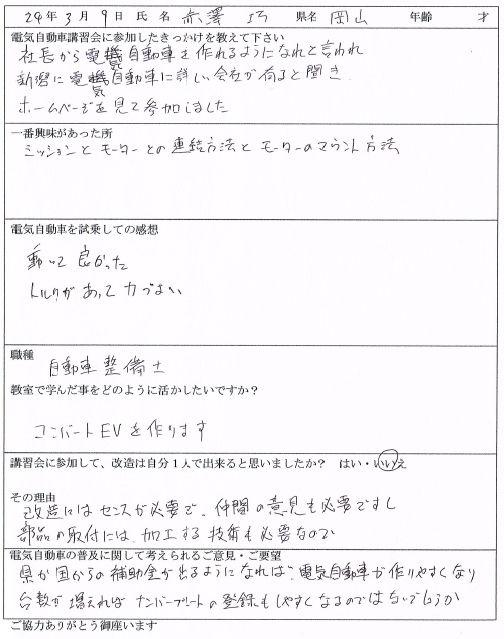 24年 3月 9日 氏名 赤澤 巧 県名 岡山 年齢 才
電気自動車講習会に参加したきっかけを教えて下さい
社長から電気自動車を作れるようになれと言われ
新潟に電気自動車に詳しい会社が有ると聞き
ホームページを見て参加しました
一番興味があった所
ミッションとモーターとの連結方法とモーターのマウント方法
電気自動車を試乗しての感想
動いて良かった
トルクがあって力づよい
職種
自動車整備士
教室で学んだ事をどのように活かしたいですか？
コンバートEVを作ります
講習会に参加して、改造は自分１人で出来ると思いましたか？ はい・いいえ
その理由
改造にはセンスが必要で、仲間の意見も必要ですし
部品の取付には、加工する技術も必要なので
電気自動車の普及に関して考えられるご意見・ご要望
県か国からの補助金が出るようになれば、電気自動車が作りやすくなり
台数が増えれば ナンバープレートの登録もしやすくなるのではないでしょうか
ご協力ありがとう御座います